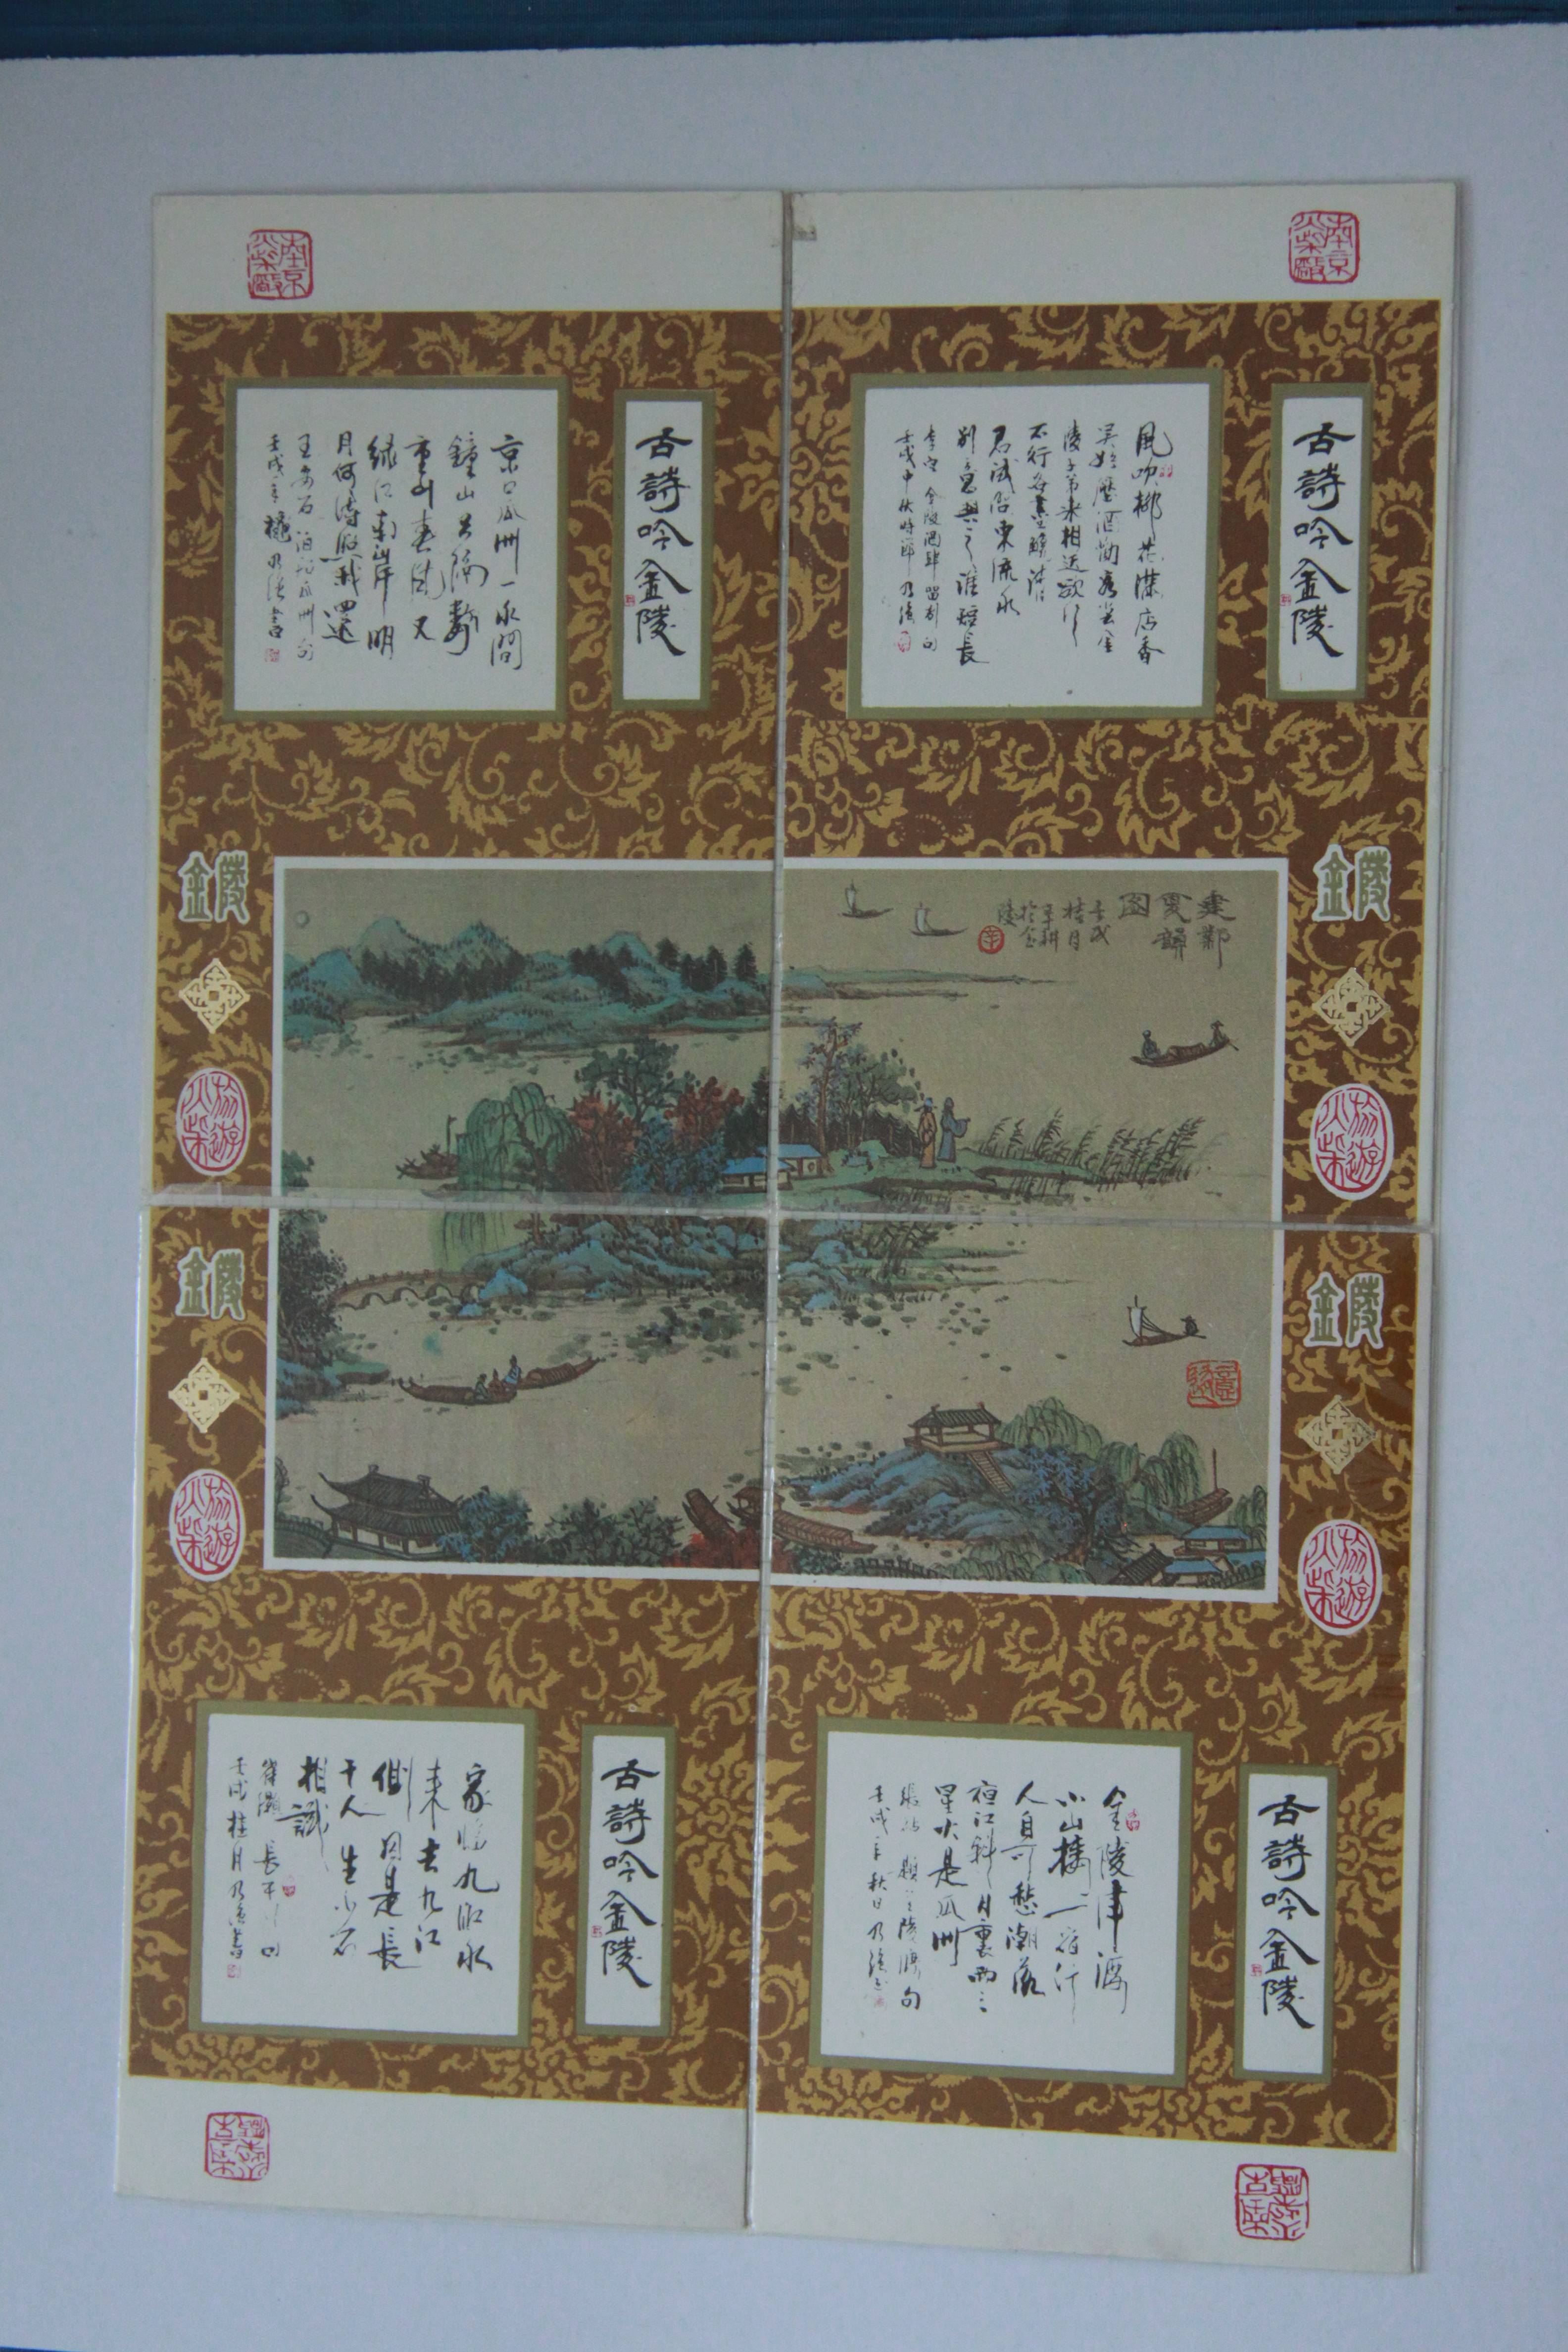 南京火柴廠
南京火柴廠
古詩吟金陵
京口瓜洲一水間
鐘山只隔數
重山春風又
綠江南岸明
月何時照我還
王安石泊船瓜洲句
古詩吟金陵
風吹柳花滿店香
吳姬壓酒勸客嘗金
陵子弟來相送欲行
不行各盡觴請
君試問東流水
別意與之誰短長
李白金陵酒肆留別句
壬戌中秋時節
金陵
金陵
建鄴
圖
壬戌
桂月
辛耕
於金
陵
火柴
火柴
金陵
金陵
火柴
火柴
古詩吟金陵
家臨九江水
来去九江
側同是長
干人生小不
相識
崔灝長干行句
壬戌桂月
古詩吟金陵
金陵津渡
小山樓一宿行
人自可愁潮落
夜江斜月裏兩三
星火是瓜洲
張祜題金陵渡句
壬戌年秋日